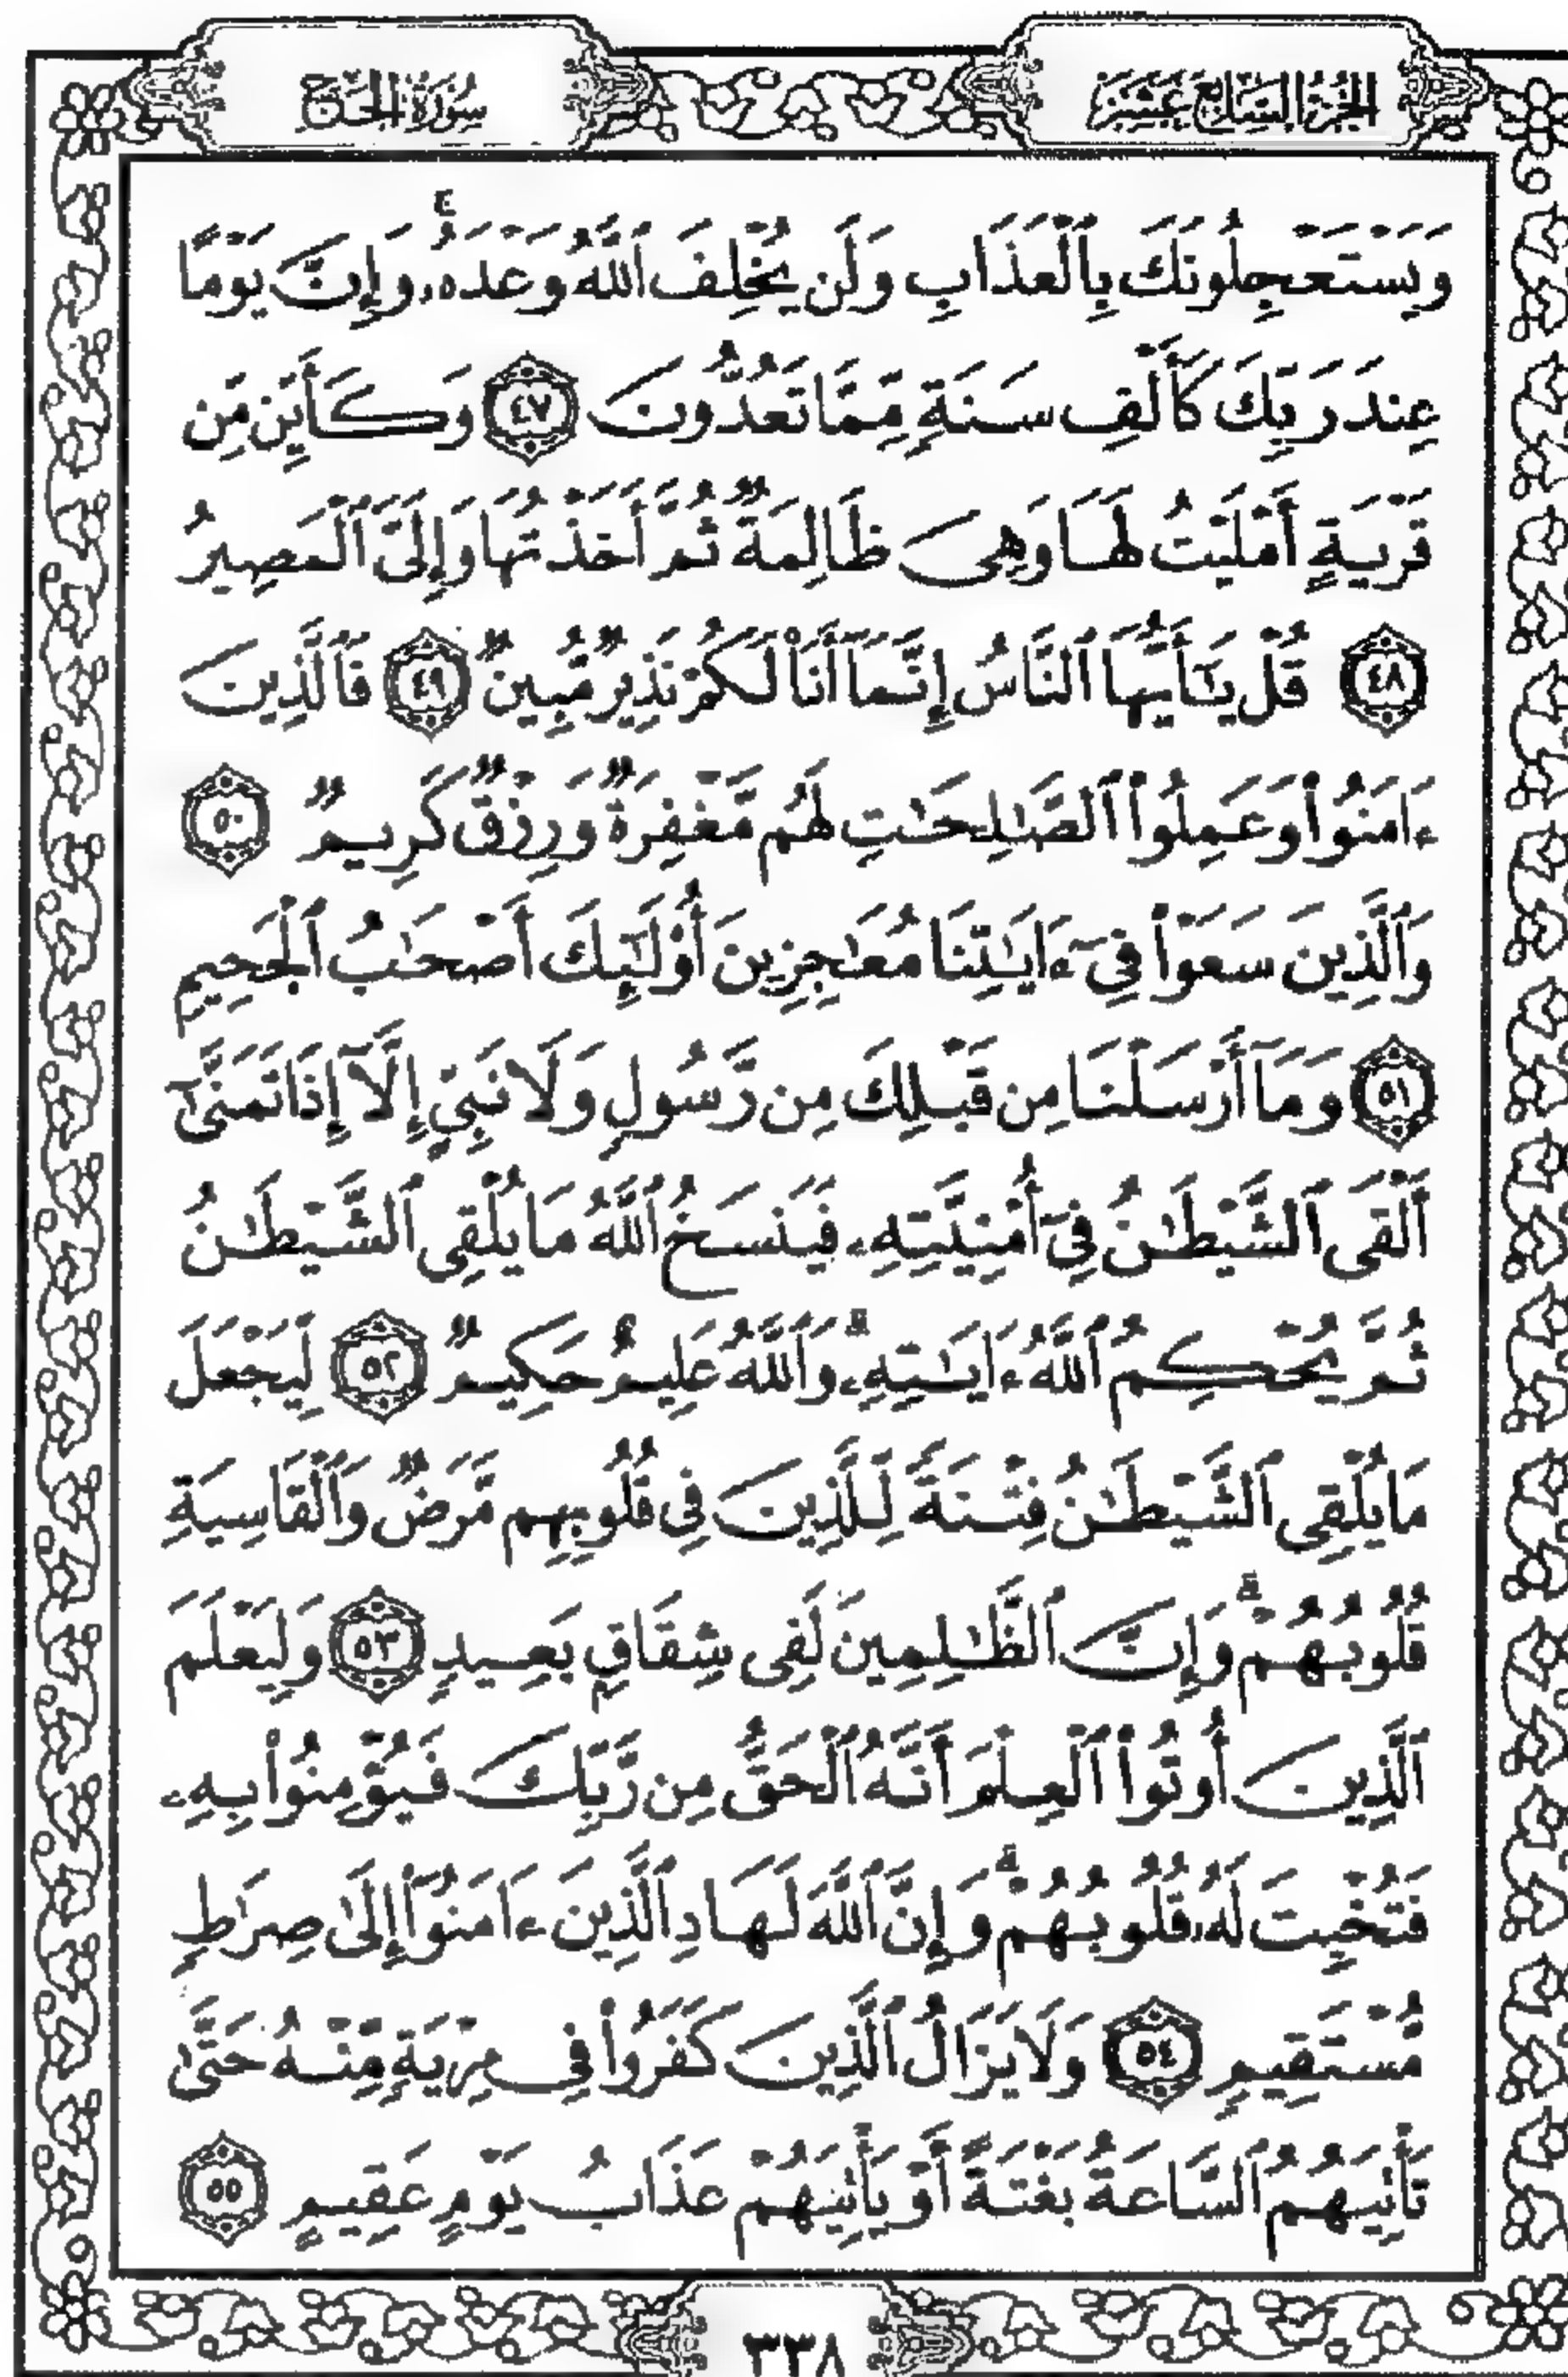 الجزء السابع عشر
سورة الحج
وَيَسْتَعْجِلُونَكَ بِٱلْعَذَابِ وَلَن يُخْلِفَ ٱللَّهُ وَعْدَهُۥ ۚ وَإِنَّ يَوْمًا
عِندَ رَبِّكَ كَأَلْفِ سَنَةٍ مِّمَّا تَعُدُّونَ ٤٧ وَكَأَيِّن مِّن
قَرْيَةٍ أَمْلَيْتُ لَهَا وَهِىَ ظَالِمَةٌ ثُمَّ أَخَذْتُهَا وَإِلَىَّ ٱلْمَصِيرُ
٤٨ قُلْ يَٰٓأَيُّهَا ٱلنَّاسُ إِنَّمَآ أَنَا۠ لَكُمْ نَذِيرٌ مُّبِينٌ ٤٩ فَٱلَّذِينَ
ءَامَنُوا۟ وَعَمِلُوا۟ ٱلصَّٰلِحَٰتِ لَهُم مَّغْفِرَةٌ وَرِزْقٌ كَرِيمٌ ٥٠
وَٱلَّذِينَ سَعَوْا۟ فِىٓ ءَايَٰتِنَا مُعَٰجِزِينَ أُو۟لَٰٓئِكَ أَصْحَٰبُ ٱلْجَحِيمِ
٥١ وَمَآ أَرْسَلْنَا مِن قَبْلِكَ مِن رَّسُولٍ وَلَا نَبِىٍّ إِلَّآ إِذَا تَمَنَّىٰٓ
أَلْقَى ٱلشَّيْطَٰنُ فِىٓ أُمْنِيَّتِهِۦ فَيَنسَخُ ٱللَّهُ مَا يُلْقِى ٱلشَّيْطَٰنُ
ثُمَّ يُحْكِمُ ٱللَّهُ ءَايَٰتِهِۦ ۗ وَٱللَّهُ عَلِيمٌ حَكِيمٌ ٥٢ لِّيَجْعَلَ
مَا يُلْقِى ٱلشَّيْطَٰنُ فِتْنَةً لِّلَّذِينَ فِى قُلُوبِهِم مَّرَضٌ وَٱلْقَاسِيَةِ
قُلُوبُهُمْ ۗ وَإِنَّ ٱلظَّٰلِمِينَ لَفِى شِقَاقٍۭ بَعِيدٍ ٥٣ وَلِيَعْلَمَ
ٱلَّذِينَ أُوتُوا۟ ٱلْعِلْمَ أَنَّهُ ٱلْحَقُّ مِن رَّبِّكَ فَيُؤْمِنُوا۟ بِهِۦ
فَتُخْبِتَ لَهُۥ قُلُوبُهُمْ ۗ وَإِنَّ ٱللَّهَ لَهَادِ ٱلَّذِينَ ءَامَنُوٓا۟ إِلَىٰ صِرَٰطٍ
مُّسْتَقِيمٍ ٥٤ وَلَا يَزَالُ ٱلَّذِينَ كَفَرُوا۟ فِى مِرْيَةٍ مِّنْهُ حَتَّىٰ
تَأْتِيَهُمُ ٱلسَّاعَةُ بَغْتَةً أَوْ يَأْتِيَهُمْ عَذَابُ يَوْمٍ عَقِيمٍ ٥٥
٣٣٨